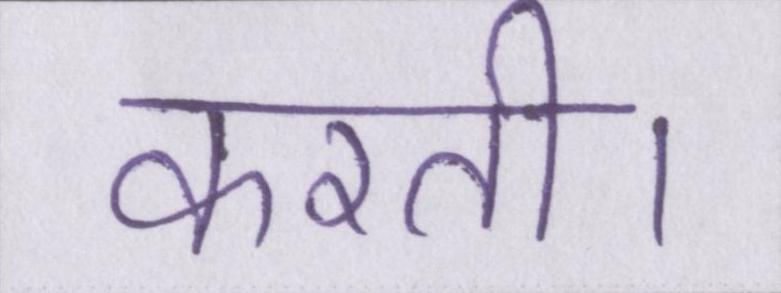 करती।